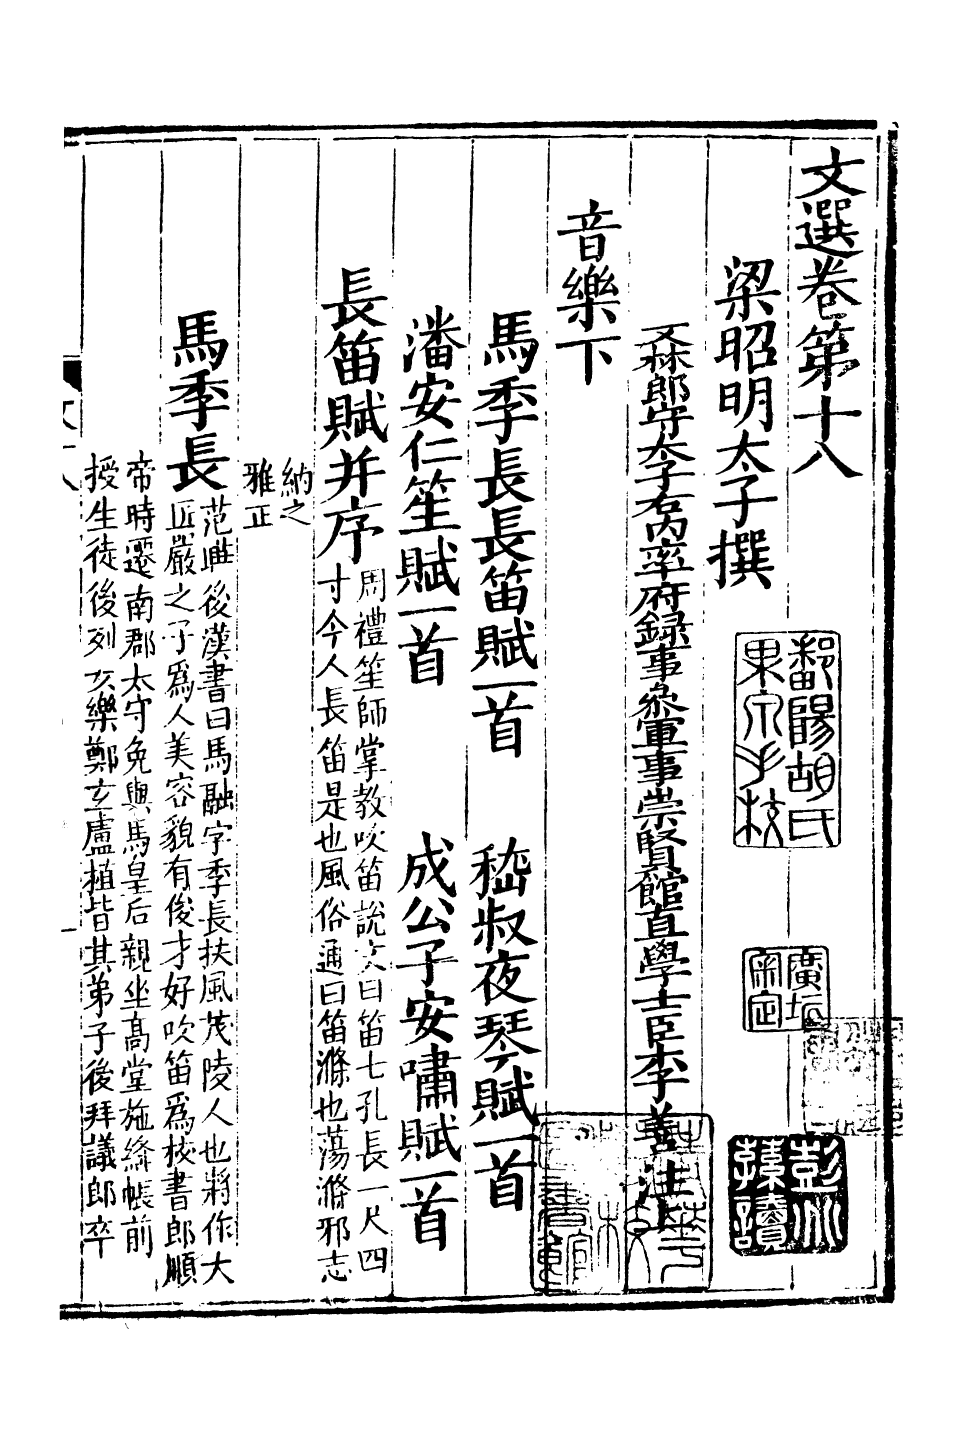 文選卷第十八
梁昭明太子撰
文林郎守太子右內率府錄事參軍事崇賢館直學士臣李善注
音樂下
馬季長長笛賦一首　嵇叔夜琴賦一首
潘安仁笙賦一首　成公子安嘯賦一首
長笛賦并序
周禮笙師掌教吹笛說文曰笛七孔長一尺四
寸今人長笛是也風俗通曰笛滌也蕩滌邪志
納之
雅正
馬季長
范曄後漢書曰馬融字季長扶風茂陵人也將作大
匠嚴之子爲人美容貌有俊才好吹笛爲校書郎順
帝時遷南郡太守免與馬皇后親坐高堂施絳帳前
授生徒後列女樂鄭玄盧植皆其弟子後拜議郎卒
鄱陽胡氏
果泉手校